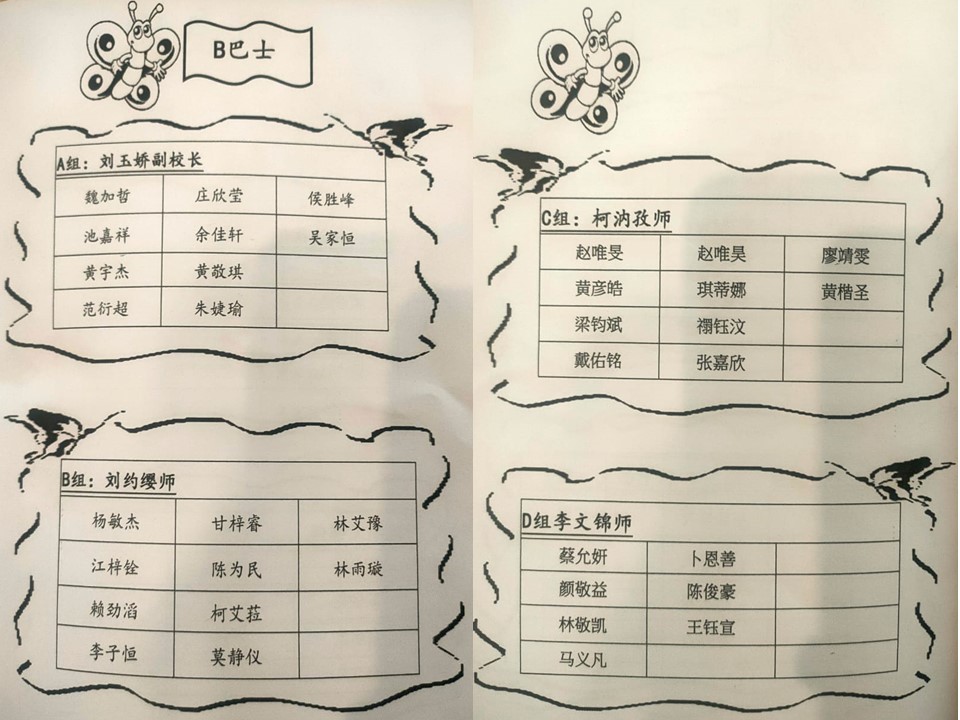 B巴士
A组：刘玉娇副校长
魏加哲 庄欣莹 侯胜峰
池嘉祥 余佳轩 吴家恒
黄宇杰 黄敬琪
范衍超 朱婕瑜
B组：刘约缨师
杨敏杰 甘梓睿 林艾豫
江梓铨 陈为民 林雨璇
赖劲滔 柯艾菈
李子恒 莫静仪
C组：柯汭孜师
赵唯旻 赵唯昊 廖靖雯
黄彦皓 琪蒂娜 黄楷圣
梁钧斌 禤钰汶
戴佑铭 张嘉欣
D组李文锦师
蔡允妍 卜恩善
颜敬益 陈俊豪
林敬凯 王钰宣
马义凡